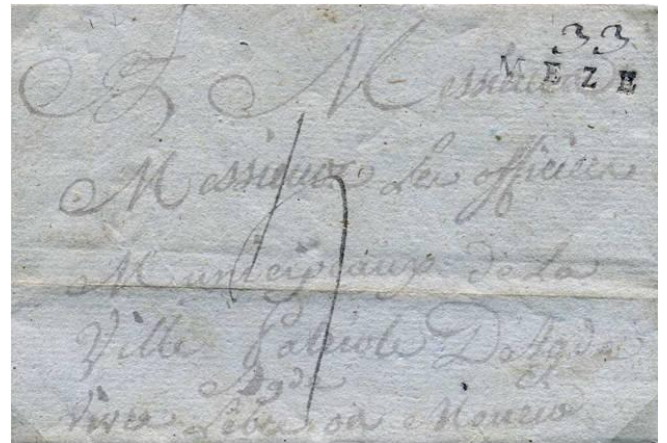 33
MEZE
A Messieurs
Messieurs Les officiers
Municipaux de la
Ville Patriote D'Agde
Agde
Vivre Libre ou Mourir